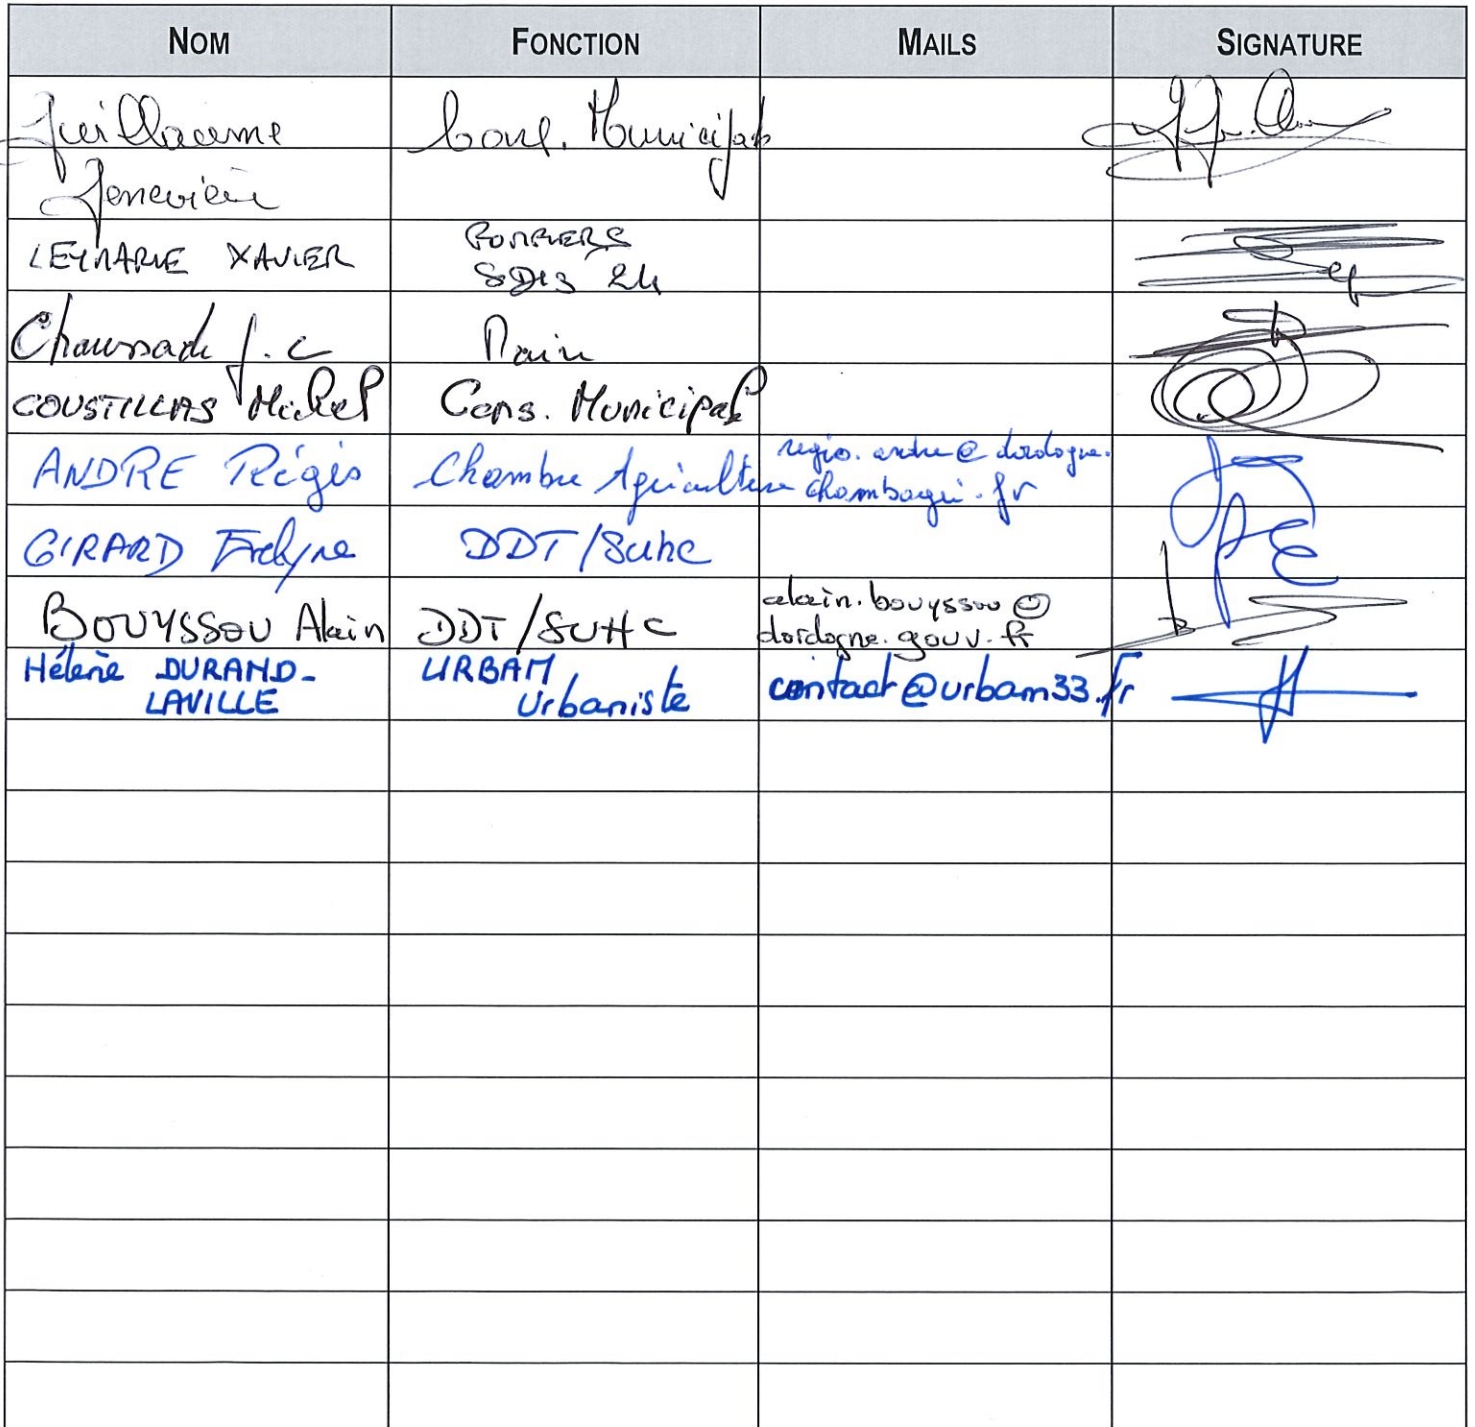 NOM FONCTION MAILS SIGNATURE
Guillaume Cons. Municipal
Geneviève
LEYMARIE XAVIER POMPIERS
SDIS 24
Chaussade J.C Maire
COUSTILLAS Michel Cons. Municipal
ANDRE Régis Chambre Agriculture regis.andre@dordogne.
chambagri.fr
GIRARD Evelyne DDT/SUHC
BOUYSSOU Alain DDT/SUHC alain.bouyssou@
dordogne.gouv.fr
Hélène DURAND- URBAM contact@urbam33.fr
LAVILLE Urbaniste